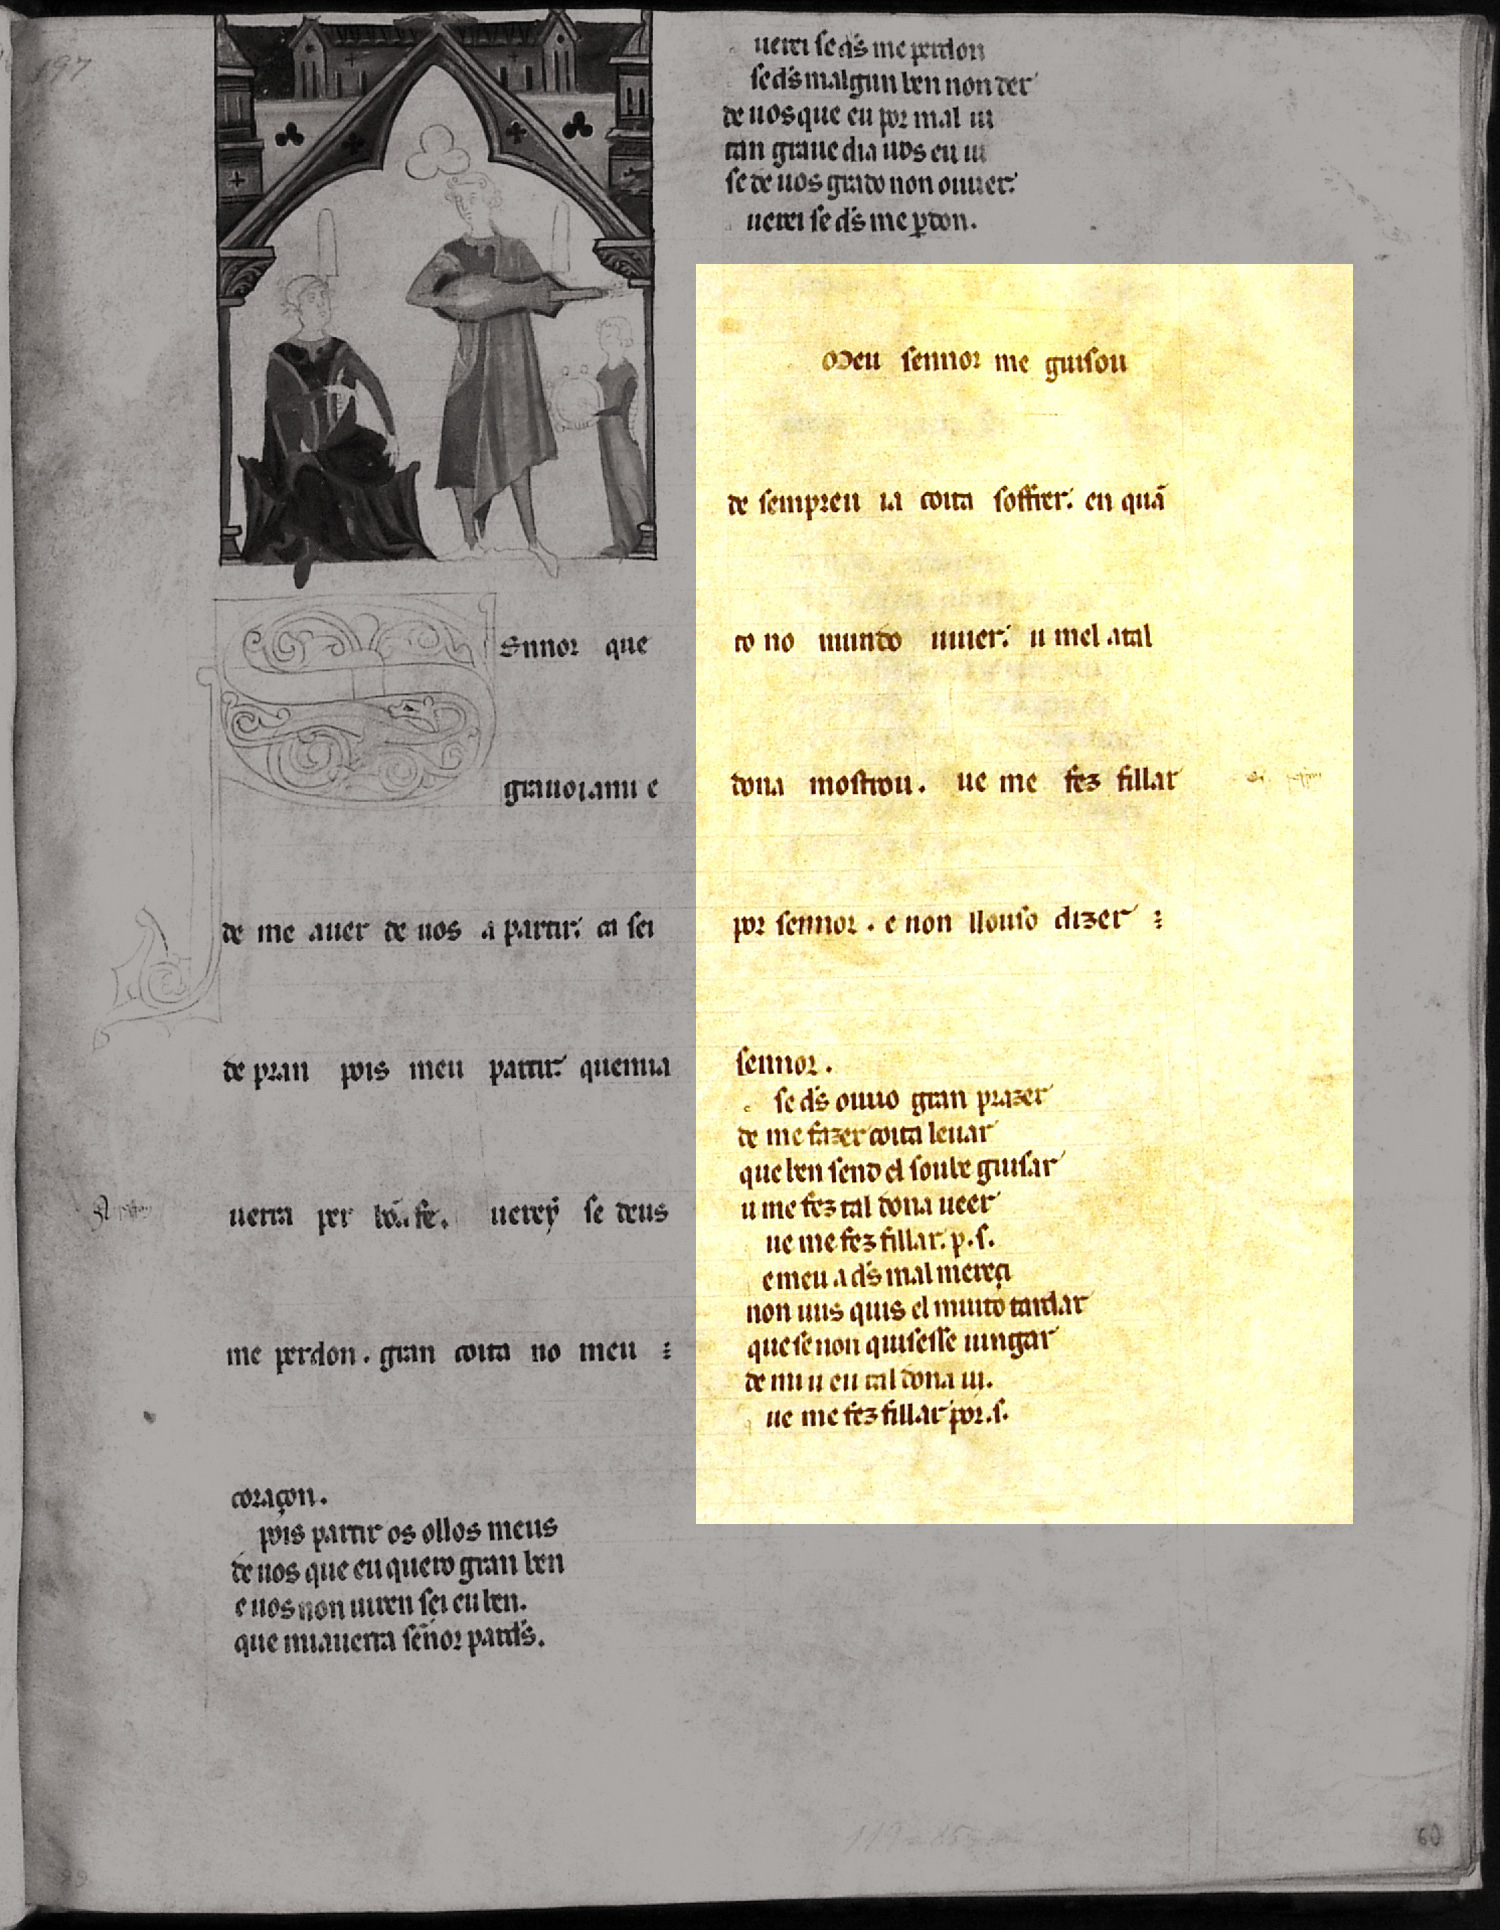 197
Ennor que
graueianue
de me auer de uos a partir. ca sei
de pran pois meu partir. quemia
uerra per bõa fe. uerey se deus
me perdon. gran coita no meu :
coraçon.
pois partir os ollos meus
de uos que eu quero gran ben
e uos non uiren sei eu ben.
que miauerra señor par ds.
uerei se ds me perdon
se ds malgun ben non der
de uos que eu por mal ui
tan graue dia uos eu ui
se de uos grado non ouuer.
uerei se ds me pdon.
Meu sennor me guisou
de sempreu ia coita soffrer. en quã
to no mundo uiuer. u mel atal
dona mostrou. ue me fez fillar
por sennor. e non llouso dizer :
sennor.
se ds ouuo gran prazer
de me fazer coita leuar
que ben send el soube guisar
u me fez tal dona ueer
ue me fez fillar. p. s.
e meu a ds mal mereçi
non uus quis el muito tardar
que se non quisesse uingar
de mi u eu tal dona ui.
ue me fez fillar por. s.
60